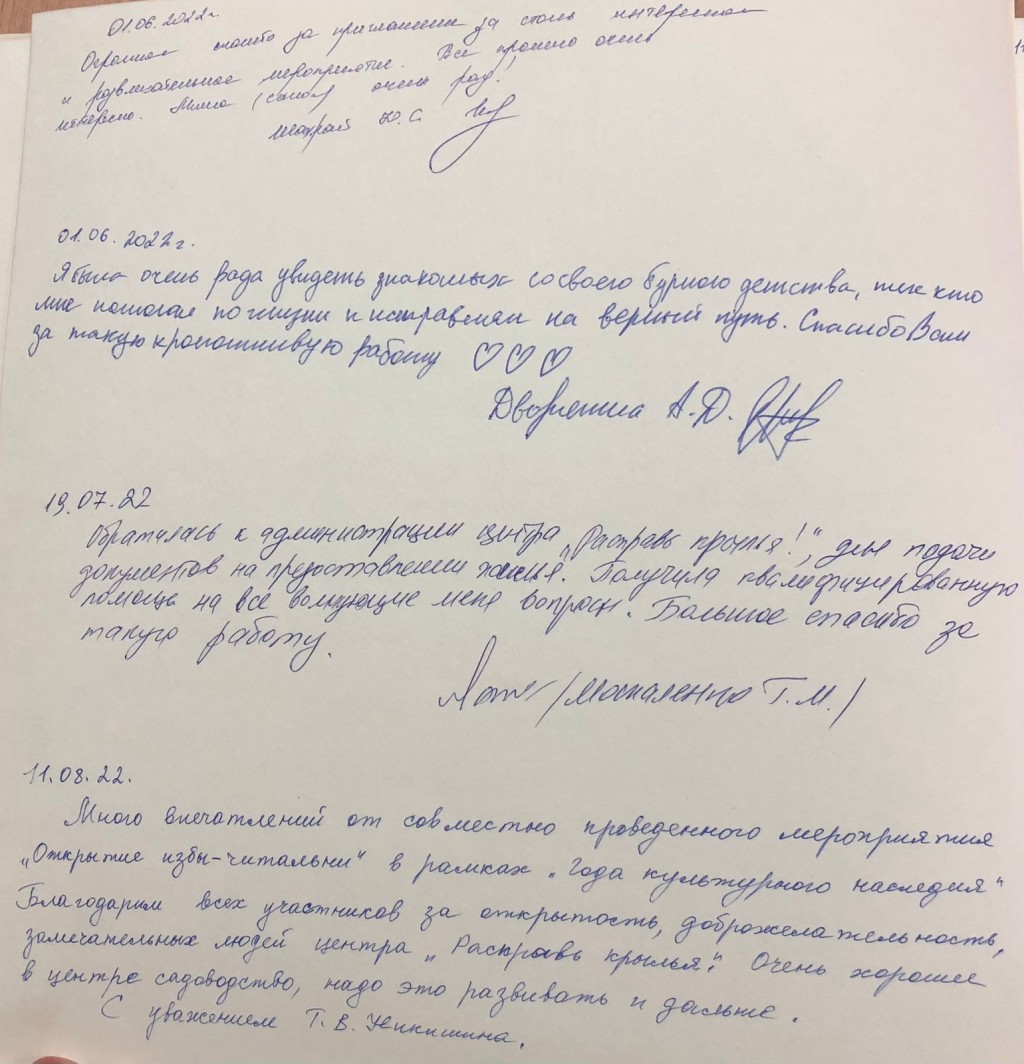 01.06.2022г.
Огромное спасибо за приглашение за столь интересное
и развлекательное мероприятие. Все прошло очень
интересно. (сынок) очень рад!
Ю.С.
01.06.2022г.
Я была очень рада увидеть знакомых со своего бурного детства, тех кто
мне помогал по жизни и исправлял на верный путь. Спасибо Вам
за такую кропотливую работу ♡♡♡
А.Д.
19.07.22
Обратилась к администрации центра „Расправь крылья!", для подачи
документов на предоставлении жилья. Получила квалифицированную
помощь на все волнующие меня вопросы. Большое спасибо за
такую работу.
/Москаленко Т.М./
11.08.22.
Много впечатлений от совместно проведенного мероприятия
„Открытие избы-читальни" в рамках „Года культурного наследия"
Благодарим всех участников за открытость, доброжелательность,
замечательных людей центра „Расправь крылья". Очень хорошее
в центре садоводство, надо это развивать и дальше.
С уважением Т.В. Никишина.